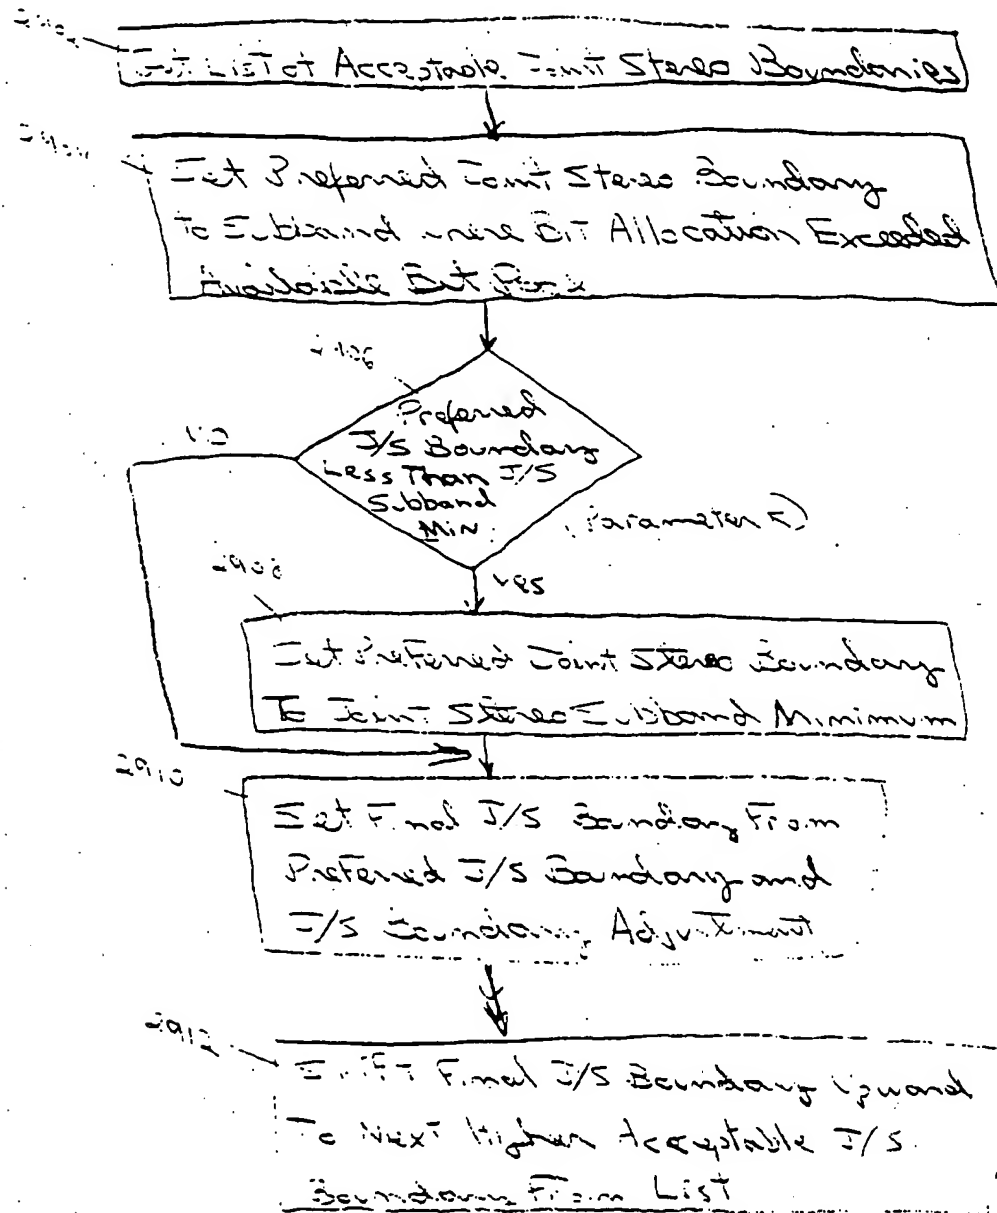 2902
Get List of Acceptable Joint Stereo Boundaries
2904
Set Preferred Joint Stereo Boundary
To Subband where Bit Allocation Exceeded
Available Bit Pool
2906
Preferred
J/S Boundary
Less Than J/S
Subband
Min
NO
(Parameter )
2908
Yes
Set Preferred Joint Stereo Boundary
To Joint Stereo Subband Minimum
2910
Set Final J/S Boundary From
Preferred J/S Boundary and
J/S Boundary Adjustment
2912
Shift Final J/S Boundary Upward
To Next Higher Acceptable J/S
Boundary From List